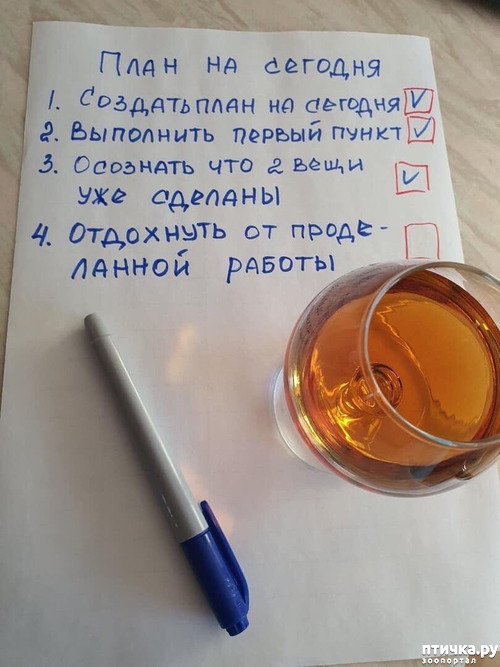 План на сегодня
1. Создать план на сегодня
2. Выполнить первый пункт
3. Осознать что 2 вещи
уже сделаны
4. Отдохнуть от проде-
ланной работы
птичка.ру
зоопортал